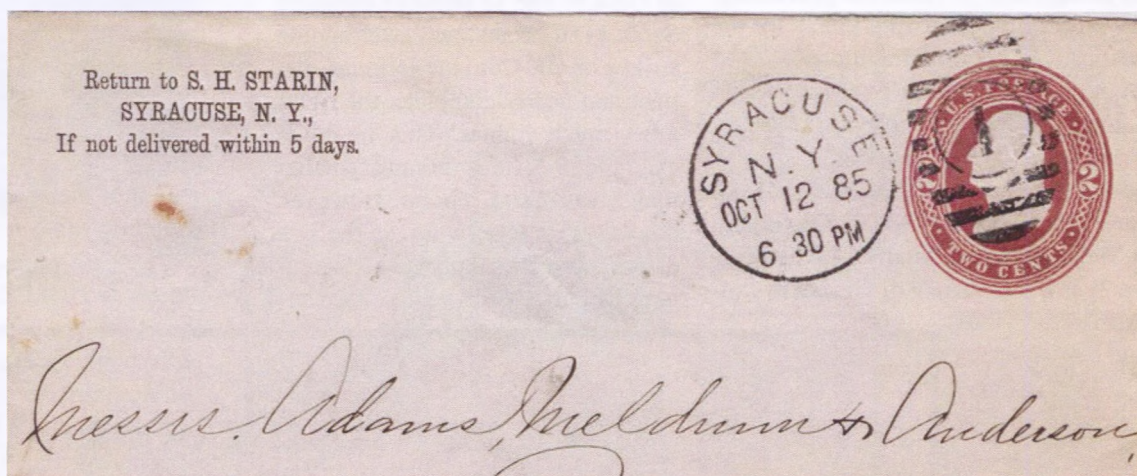 Return to S. H. STARIN,
SYRACUSE, N. Y.,
If not delivered within 5 days.
SYRACUSE
N. Y.
OCT 12 85
6 30 PM
1
U.S. POSTAGE
2 2
TWO CENTS
Messrs. Adams, Meldrum & Anderson,